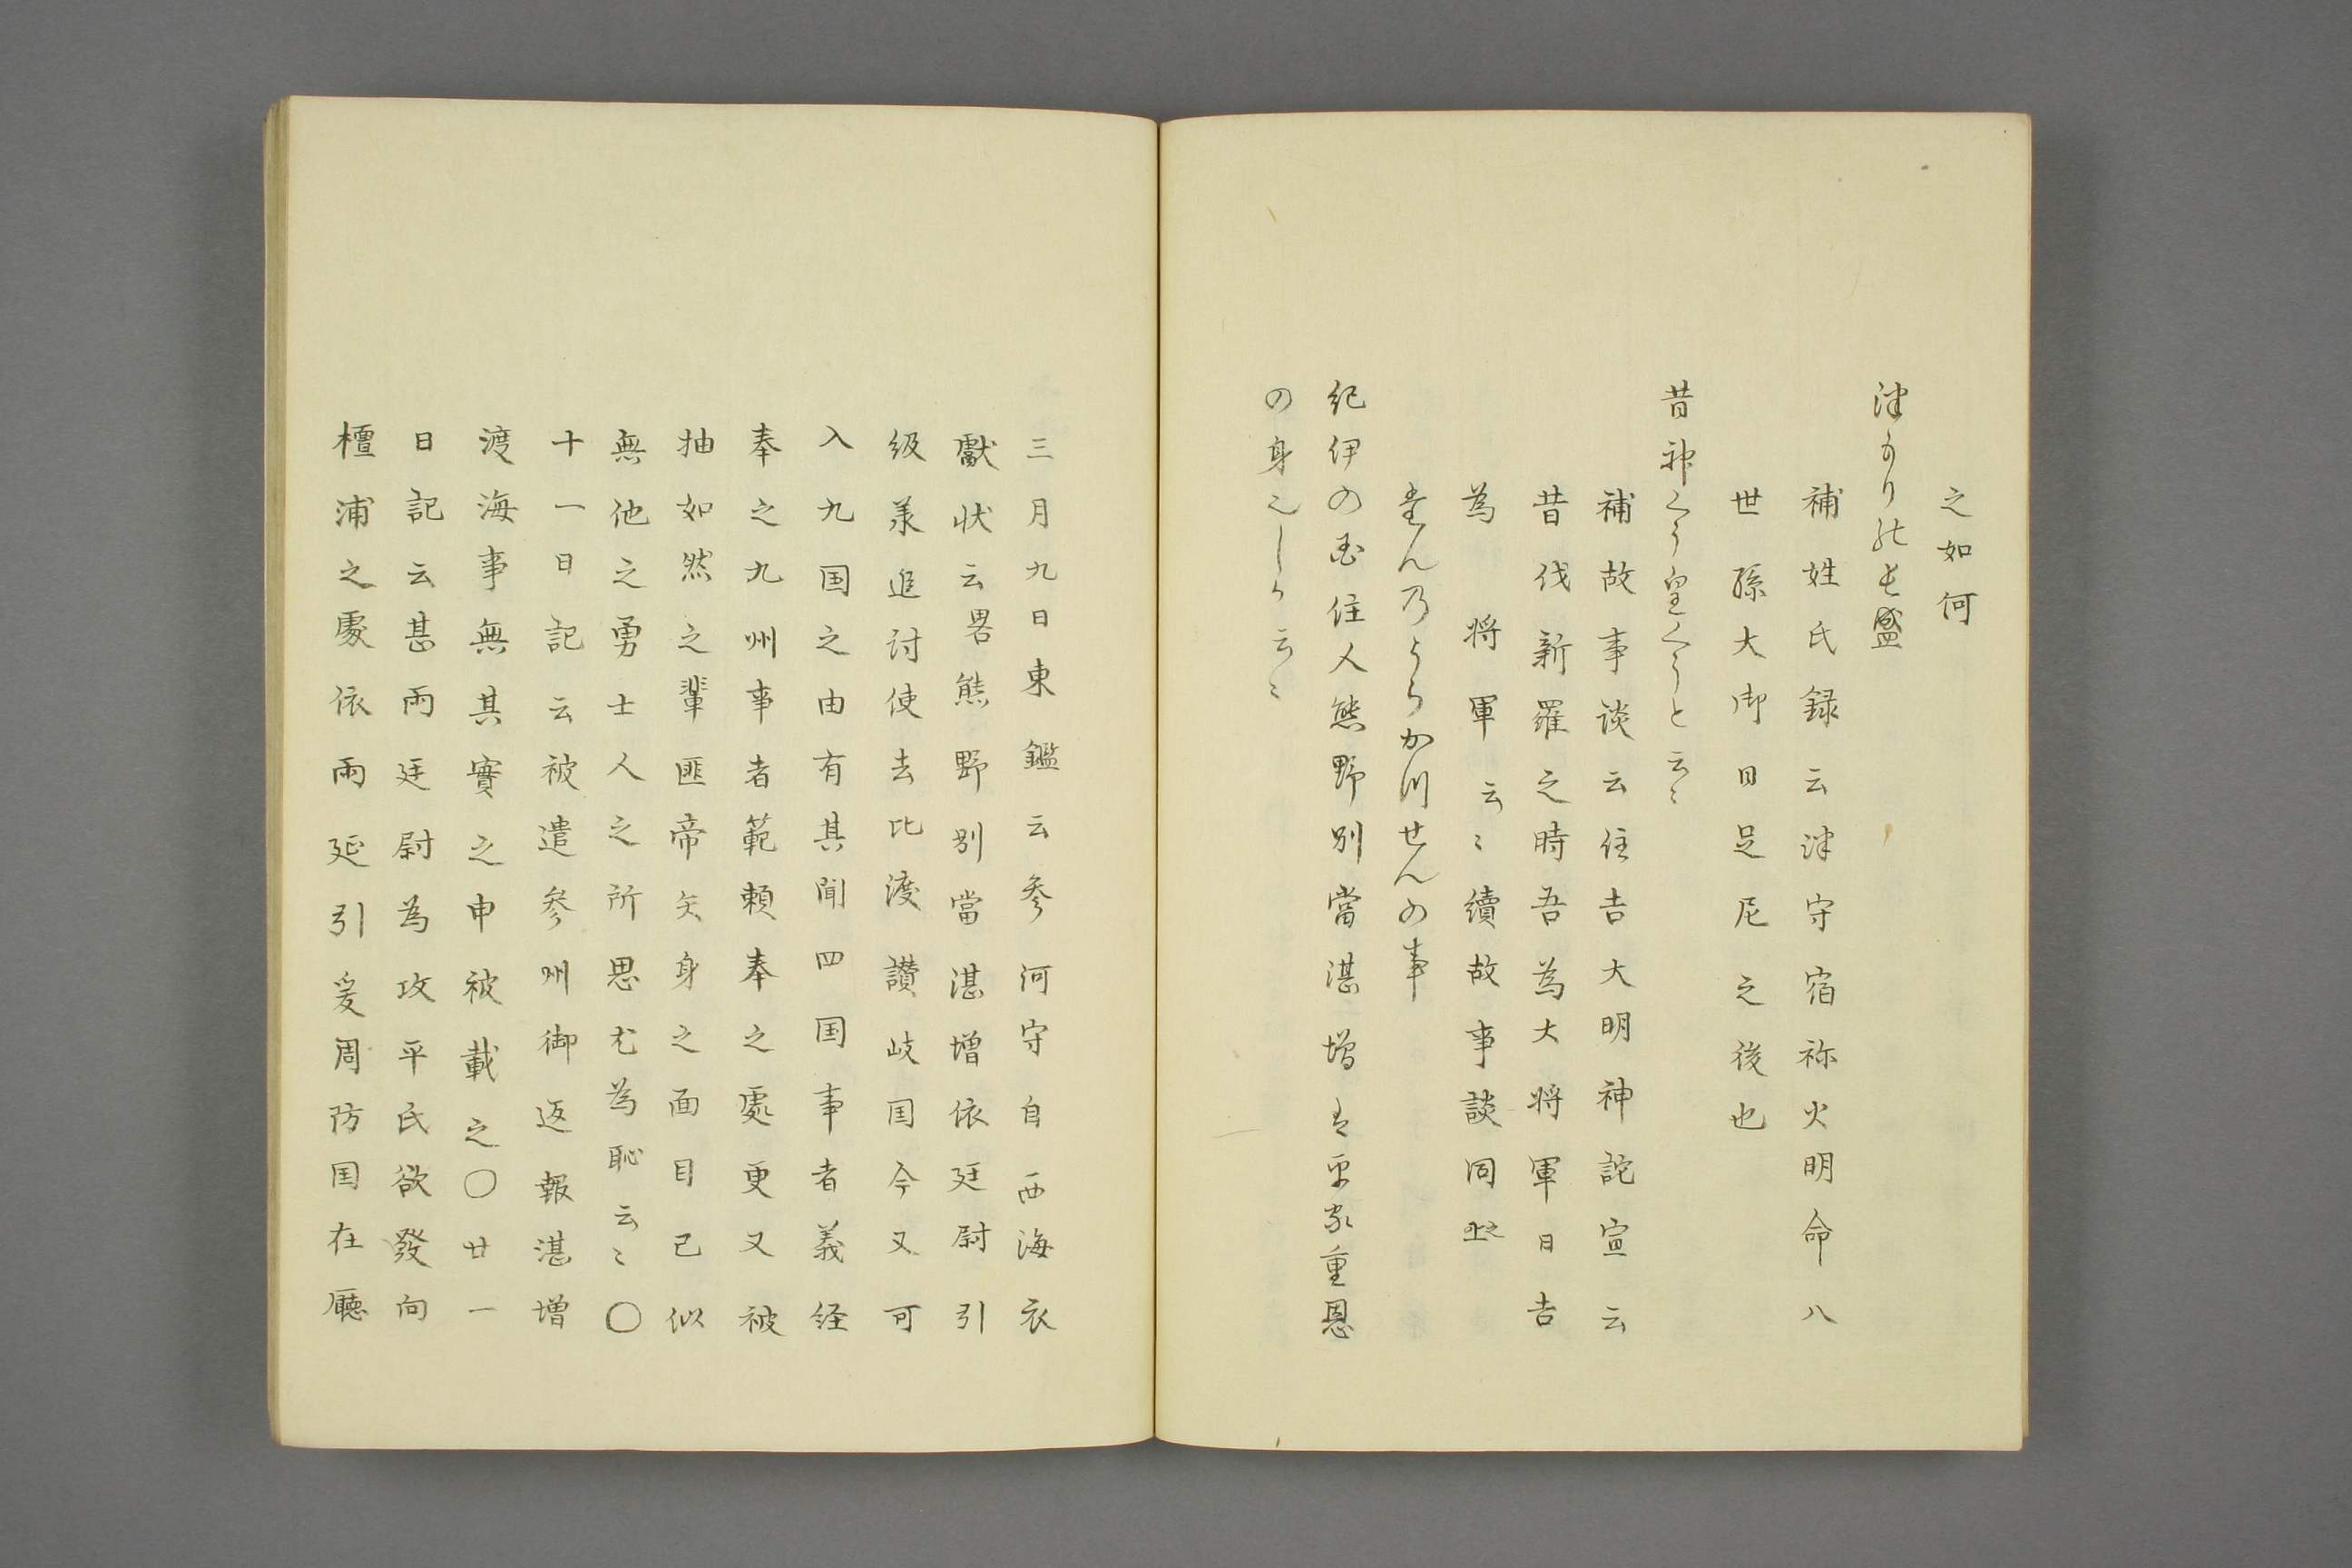 之如何
津もりの長盛
補姓氏録云津守宿祢火明命八
世孫大御日足尼之後也
昔神くう皇くうと云〻
補故事談云住吉大明神詫宣云
昔伐新羅之時吾為大将軍日吉
為 将軍云〻續故事談同之
たんのうらかつせんの事
紀伊の国住人熊野別當湛増は平家重恩
の身之しか云〻
三月九日東鑑云参河守自西海衣
獻状云畧熊野別當湛増依廷尉引
級羕追討使去比渡讃岐国今又可
入九国之由有其聞四国事者義経
奉之九州事者範頼奉之處更又被
抽如然之輩匪啻失身之面目已似
無他之勇士人之所思尤為恥云〻〇
十一日記云被遣参州御返報湛増
渡海事無其實之申被載之〇廿一
日記云甚雨廷尉為攻平氏欲發向
檀浦之處依雨延引爰周防国在廳